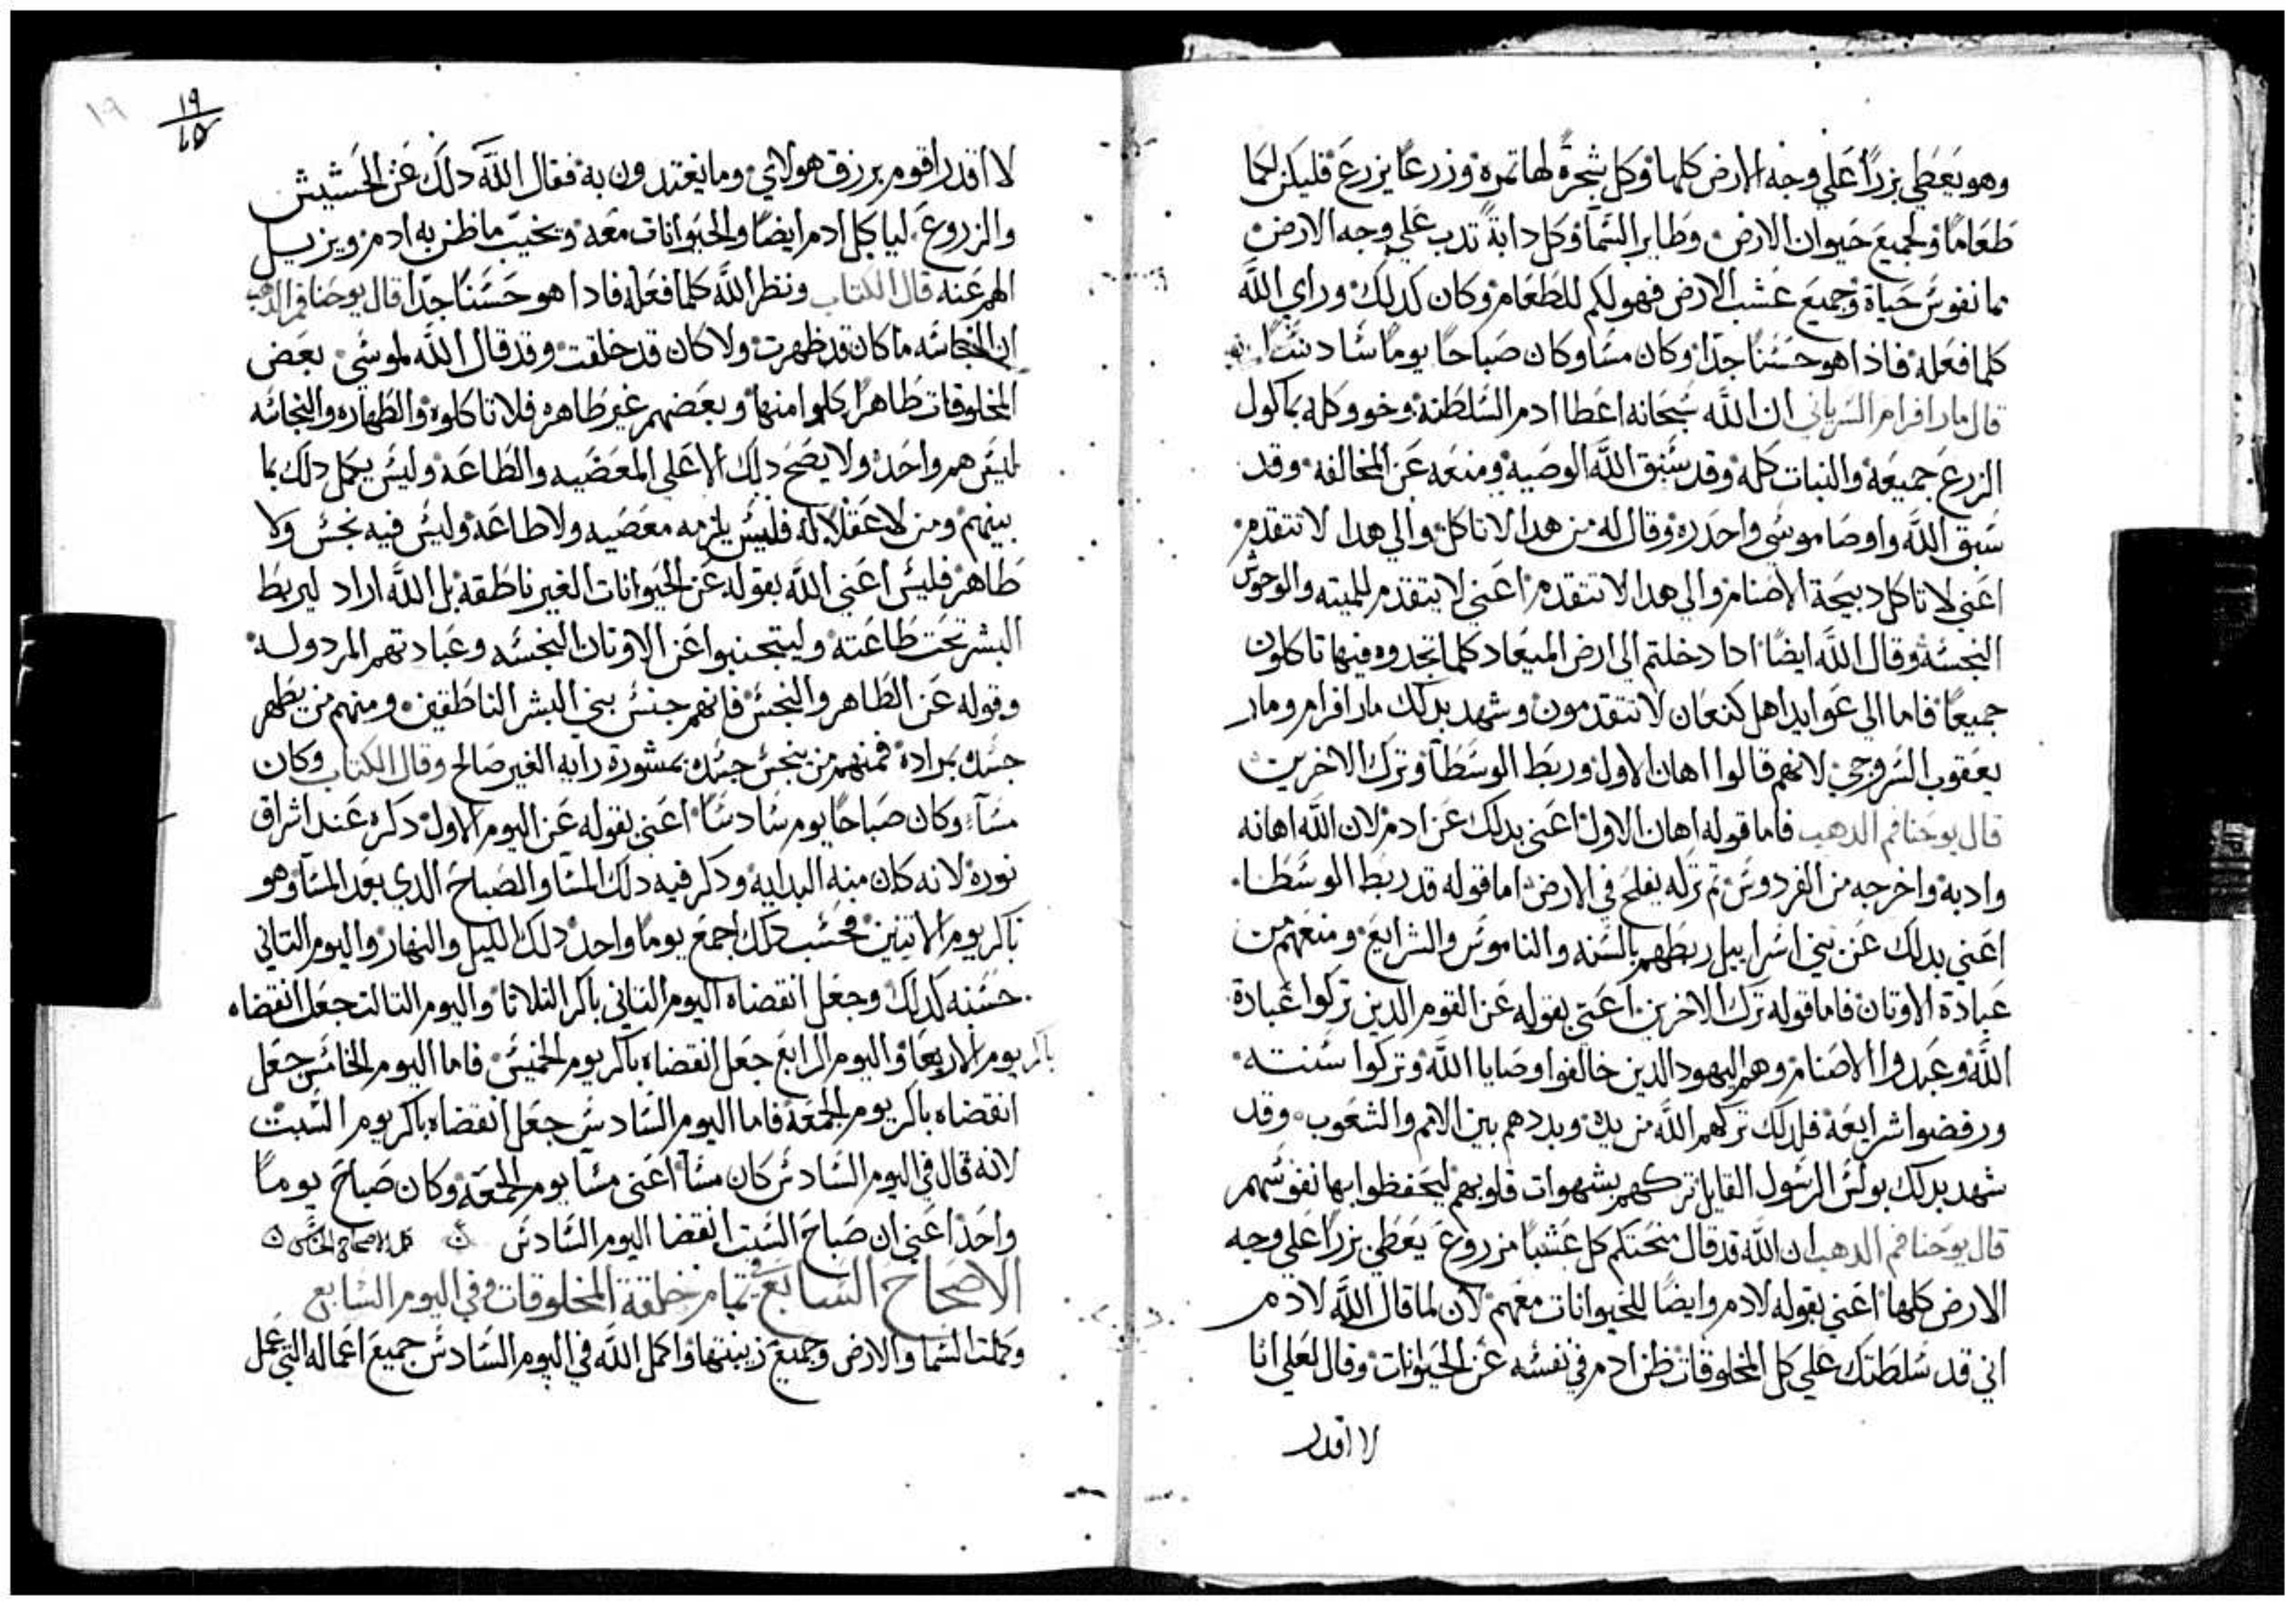 وهو يعطي بزرًا علي وجه الارض كلها وكل شجرة لها تمره وزرعًا يزرع فليكن لكما
طعامًا ولجميع حيوان الارض وطاير السما وكل دابة تدب علي وجه الارض
بما نفوس حياة وجميع عشب الارض فهو لكم للطعام وكان كدلك وراي الله
كلما فعله فاذا هو حسنًا جدًا وكان مسا وكان صباحًا يومًا سادسًا
قال مار افرام السرياني ان الله سبحانه اعطا ادم السلطنة وخو وكله بماكول
الزرع جميعه والنبات كله وقد سبق الله الوصيه ومنعه عن المخالفه وقد
سبق الله واوصا موسي واحدره وقال له من هدا لا تاكل والي هدا لا تتقدم
اعني لا تاكل دبيحة الاصنام والي هدا لا تتقدم اعني لا يتقدم للميته والوحوش
النجسه وقال الله ايضًا ادا دخلتم الي ارض الميعاد كلما تجدوه فيها تاكلون
جميعًا فاما الي عوايد اهل كنعان لا تتقدمون وشهد بدلك مار افرام ومار
يعقوب السروجي لانهم قالوا اهان الاول وربط الوسطا وترك الاخرين
قال يوحنا فم الدهب فاما قوله اهان الاول اعني بدلك عن ادم لان الله اهانه
وادبه واخرجه من الفردوس تم تركه يفلح في الارض اما قوله قد ربط الوسطا
اعني بدلك عن بني اسراييل ربطهم بالسنه والناموس والشرايع ومنعهم من
عبادة الاوتان فاما قوله ترك الاخرين اعني بقوله عن القوم الدين تركوا عبادة
الله وعبدوا الاصنام وهم اليهود الدين خالفوا وصايا الله وتركوا سنته
ورفضوا شرايعه فلدلك تركهم الله من يده وبددهم بين الامم والشعوب وقد
شهد بدلك بولس الرسول القايل تركهم بشهوات قلوبهم ليحفظوا بها نفوسهم
قال يوحنا فم الدهب ان الله قد قال منحتكم كل عشبًا مزروع يعطي بزرًا علي وجه
الارض كلها اعني بقوله لادم وايضًا للحيوانات معهم لان لما قال الله لادم
اني قد سلطتك علي كل المخلوقات ظن ادم في نفسه عن الحيوانات وقال لعلي انا
لا اقدر
١٩
١٩
لا اقدر اقوم برزق هولاي وما يغتدون به فقال الله دلك عن الحشيش
والزروع لياكل ادم ايضًا والحيوانات معه ويخيب ما ظن به ادم ويزيل
الهم عنه قال الكتاب ونظر الله كلما فعله فادا هو حسنًا جدًا قال يوحنا فم الدهب
ان النجاسه ما كان قد ظهرت ولا كان قد خلقت وقد قال الله لموسي بعض
المخلوقات طاهرًا كلوا منها وبعضهم غير طاهره فلا تاكلوه والطهاره والنجاسه
ليس هم واحد ولا يصح دلك الا علي المعصيه والطاعه وليس يكمل دلك بما
بينهم ومن لا عقلا له فليس يلزمه معصيه ولا طاعه وليس فيه نجس ولا
طاهر فليس اعني الله بقوله عن الحيوانات الغير ناطقه بل الله اراد ليربط
البشر تحت طاعته وليتجنبوا عن الاوتان النجسه وعبادتهم المردوله
وقوله عن الطاهر والنجس فانهم جنس بني البشر الناطقين ومنهم من يطهر
جسده بمراده فمنهم من ينجس جسده بمشورة رايه الغير صالح وقال الكتاب وكان
مساء وكان صباحًا يوم سادسًا اعني بقوله عن اليوم الاول دكره عند اشراق
نوره لانه كان منه البدايه ودكر فيه دلك المسا والصباح الدي بعد المسا وهو
باكر يوم الاتنين فحسب دلك اجمع يومًا واحد دلك الليل والنهار واليوم التاني
حسبه كدلك وجعل انقضاه اليوم التاني باكر التلاتا واليوم التالت جعل انقضاه
باكر يوم الاربعا واليوم الرابع جعل انقضاه باكر يوم الخميس فاما اليوم الخامس جعل
انقضاه باكر يوم الجمعه فاما اليوم السادس جعل انقضاه باكر يوم السبت
لانه قال في اليوم السادس كان مسا اعني مسا يوم الجمعه وكان صباح يومًا
واحد اعني ان صباح السبت انقضا اليوم السادس كمل الاصحاح
الاصحاح السابع في تمام خلقة المخلوقات وفي اليوم السابع
وكملت السما والارض وجميع زينتها واكمل الله في اليوم السادس جميع اعماله التي عمل